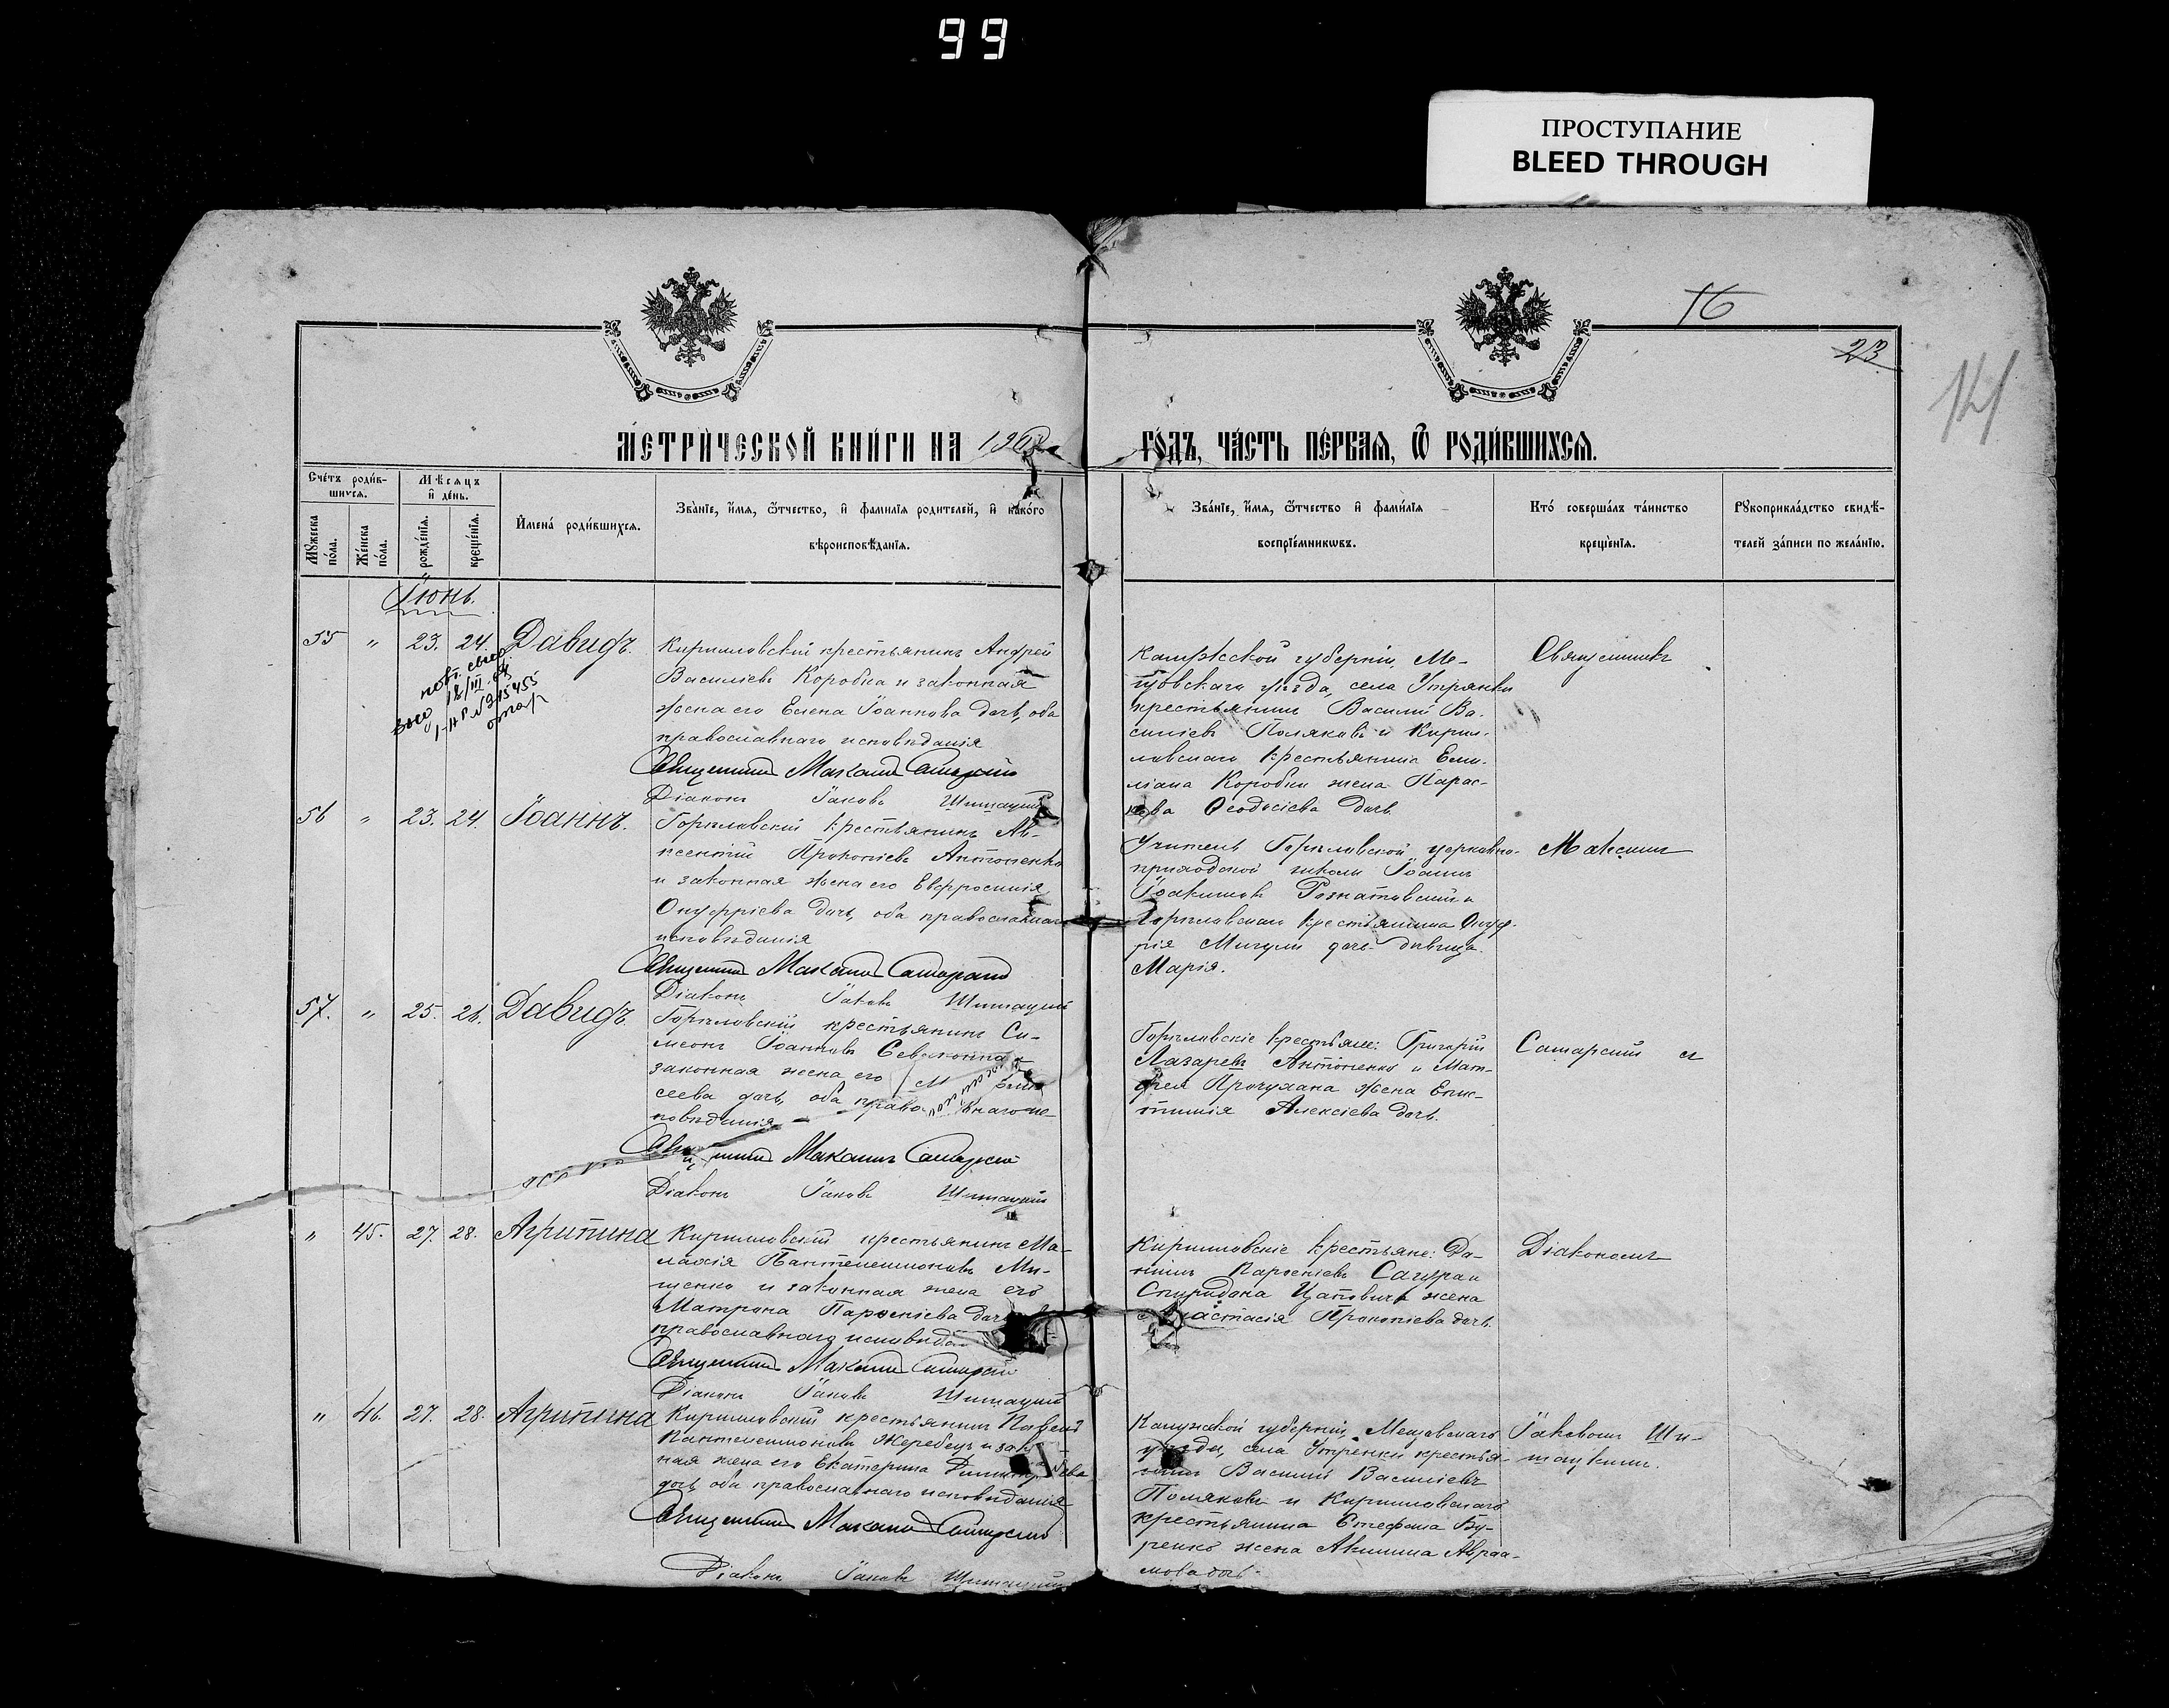 99
ПРОСТУПАНИЕ
BLEED THROUGH
16
23
МЕТРИ́ЧЕСКОЙ КНИ́ГИ НА 190
ГО́ДЪ, ЧА́СТЬ ПЕ́РВАЯ, Ѿ РОДИ́ВШИХСЯ.
Сче́тъ роди́в-
шихся.
Мѣсяцъ
и де́нь.
Мꙋжеска
по́ла.
Же́нска
по́ла.
рожде́нїя.
креще́нїя.
Имена́ роди́вшихся.
Зва́нїе, и́мя, ѻ́тчество, и фамилїя родителей, и како́го
вѣроисповѣ́данїя.
Зва́нїе, и́мя, ѻ́тчество и фами́лїя
воспрїе́мникѡвъ.
Кто́ соверша́лъ та́инство
креще́нїя.
Рꙋкоприкла́дство свидѣ́-
телей за́писи по жела́нїю.
Іюнь.
55 " 23. 24. Давидъ.
Кирилловскій крестьянинъ Андрей
Василіевъ Коробка и законная
жена его Елена Іоаннова дочь, оба
православнаго исповѣданія
Священникъ Максимъ Самарскій
Діаконъ Іаковъ Шишацкій
Калужской губерніи, Ме-
щовскаго уѣзда, села Утрянки
крестьянинъ Василій Ва-
силіевъ Поляковъ и Кирил-
ловскаго крестьянина Еми-
ліана Коробки жена Парас-
кева Ѳеодосіева дочь.
Священникъ
56 " 23. 24. Іоаннъ.
Горѣловскій крестьянинъ Ав-
ксентій Прокопіевъ Антоненко
и законная жена его Евфросинія
Онуфріева дочь, оба православнаго
исповѣданія
Священникъ Максимъ Самарскій
Діаконъ Іаковъ Шишацкій
Учитель Горѣловской церковно-
приходской школы Іоаннъ
Іоакимовъ Рознатовскій и
Горѣловскаго крестьянина Онуф-
рія Мигули дочь девица
Марія.
Максимъ
57. " 25. 26. Давидъ.
Горѣловскій крестьянинъ Си-
меонъ Іоанновъ
законная жена его
сеева дочь, оба право
повѣданія
Максимъ Самарскій
Діаконъ Іаковъ Шишацкій
Горѣловскіе крестьяне: Григорій
Лазаревъ Антоненко и Мат-
фея жена Епис-
тимія Алексіева дочь.
Самарскій съ
" 45. 27. 28. Агрипина
Кирилловскій крестьянинъ Ма-
лахія Пантелеимоновъ Ми-
щенко и законная жена его
Матрона Парѳеніева дочь
православнаго исповѣда
Священникъ Максимъ Самарскій
Діаконъ Іаковъ Шишацкій
Кирилловскіе крестьяне: Да-
ніилъ Парѳеніевъ
Спиридона жена
Анастасія Прокопіева дочь.
Діакономъ
" 46. 27. 28. Агрипина
Кирилловскій крестьянинъ Павелъ
Пантелеимоновъ Жеребецъ и зак
ная жена его Екатерина
дочь, оба православнаго исповѣданія
Священникъ Максимъ Самарскій
Діаконъ Іаковъ Шишацкій
Калужской губерніи, Мещовскаго
уѣзда, села Утренки крестья-
нинъ Василій Василіевъ
Поляковъ и Кирилловскаго
крестьянина Стефана Бу-
ренко жена Акилина Авраа-
мова дочь.
Іаковомъ Ши-
шацкимъ.